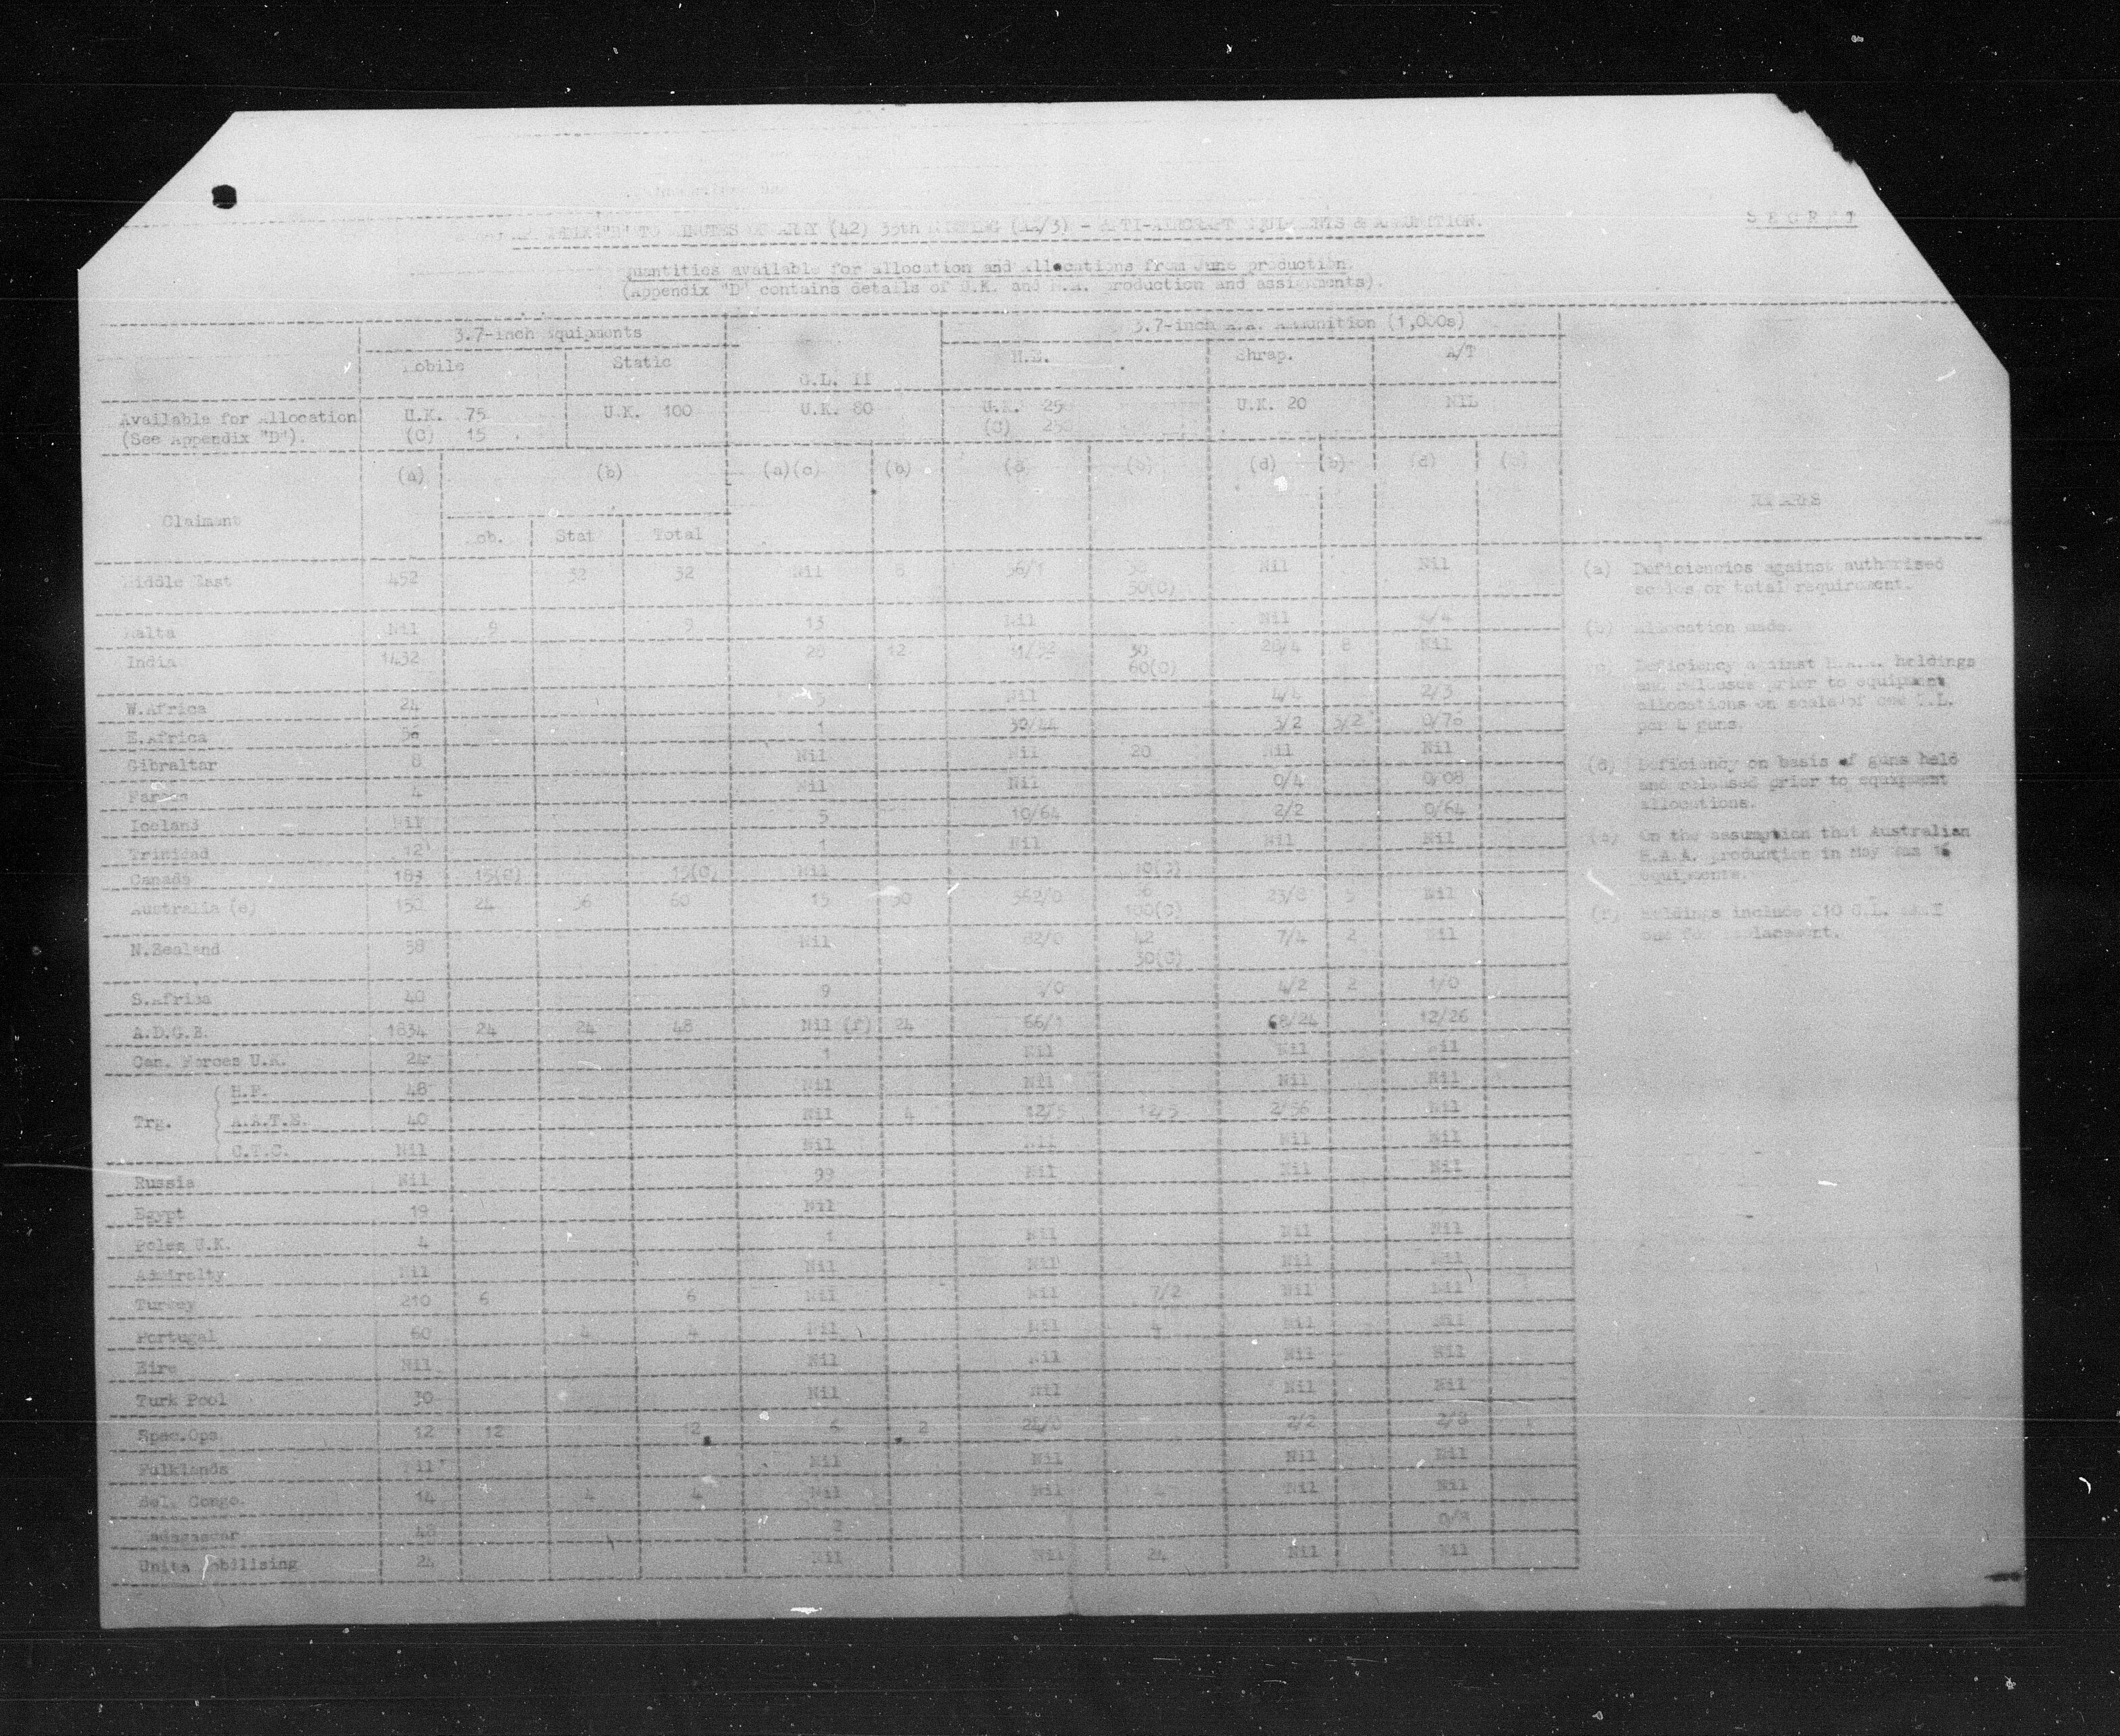 SECRET
APPENDIX "B" TO MINUTES OF ARMY (42) 35th MEETING (AA/3) - ANTI-AIRCRAFT EQUIPMENTS & AMMUNITION.
Quantities available for allocation and allocations from June production.
(Appendix "D" contains details of U.K. and production and assignments).
3.7-inch Equipments 3.7-inch A.A. Ammunition (1,000s)
Mobile Static G.L. II H.E. Shrap. A/T
Available for Allocation U.K. 75 U.K. 100 U.K. 80 U.K. U.K. 20 Nil
(See Appendix "D"). (C) 15 (C)
(a) (b) (a)(c) (b) (d) (b) (d) (b) (d)
Claimant
Mob. Stat Total
REMARKS
Middle East 452 32 32 Nil 8 Nil Nil
50(C)
Malta Nil 9 9 13 Nil Nil 4/4
India 1432 20 12 30 28/4 8 Nil
60(C)
W.Africa 24 5 Nil 4/4 2/3
E.Africa 56 1 30/44 3/2 3/2 0/76
Gibraltar 8 Nil Nil 20 Nil Nil
Faroes 4 Nil Nil 0/4 0/08
Iceland Nil 5 10/64 2/2 0/64
Trinidad 12 1 Nil Nil Nil
Canada 183 15(C) 15(C) Nil
Australia (e) 24 36 60 15 30 362/0 23/8 5 Nil
100(C)
N.Zealand 58 Nil 82/0 42 7/4 2 Nil
30(C)
S.Africa 40 9 4/2 2 1/0
A.D.G.B. 1834 24 24 48 Nil (f) 24 66/1 68/24 12/26
Can. Forces U.K. 24 1 Nil Nil Nil
Trg.
H.F. 48 Nil Nil Nil Nil
A.A.T.E. 40 Nil 4 12/5 12/5 2/56 Nil
C.T.C. Nil Nil Nil Nil Nil
Russia Nil 99 Nil Nil Nil
Egypt 19 Nil
Poles U.K. 4 1 Nil Nil Nil
Admiralty Nil Nil Nil Nil Nil
Turkey 210 6 6 Nil Nil 7/2 Nil Nil
Portugal 60 4 4 Nil Nil 4 Nil Nil
Eire Nil Nil Nil Nil Nil
Turk Pool 30 Nil Nil Nil Nil
Spec.Ops 12 12 12 6 2 24/0 2/2 2/8
Falklands Nil Nil Nil Nil Nil
Bel. Congo. 14 4 4 Nil Nil 4 Nil Nil
Madagascar 48 2 0/8
Units Mobilising 24 Nil Nil 24 Nil Nil
(a) Deficiencies against authorised
scales or total requirement.
(b) Allocation made.
(c) Deficiency against H.A.A. holdings
and releases prior to equipment
allocations on scale of one G.L.
per 4 guns.
(d) Deficiency on basis of guns held
and released prior to equipment
allocations.
(e) On the assumption that Australian
H.A.A. production in May was 16
equipments.
(f) Holdings include 210 G.L.
one for replacement.